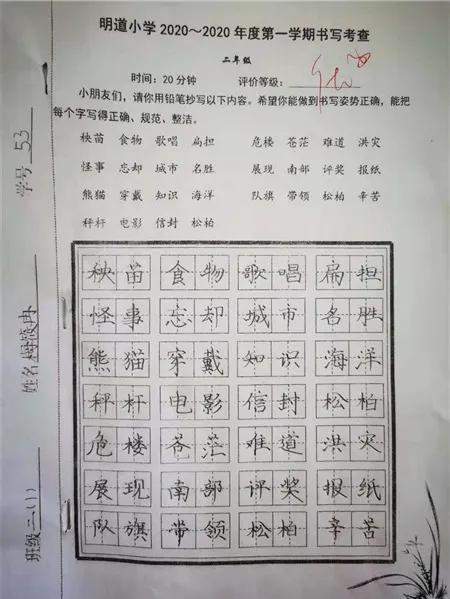 明道小学2020～2020年度第一学期书写考查
二年级
时间：20分钟 评价等级：优
小朋友们，请你用铅笔抄写以下内容。希望你能做到书写姿势正确，能把
每个字写得正确、规范、整洁。
秧苗 食物 歌唱 扁担 危楼 苍茫 难道 洪灾
怪事 忘却 城市 名胜 展现 南部 评奖 报纸
熊猫 穿戴 知识 海洋 队旗 带领 松柏 辛苦
秤杆 电影 信封 松柏
秧苗 食物 歌唱 扁担
怪事 忘却 城市 名胜
熊猫 穿戴 知识 海洋
秤杆 电影 信封 松柏
危楼 苍茫 难道 洪灾
展现 南部 评奖 报纸
队旗 带领 松柏 辛苦
班级二（1） 姓名 学号53